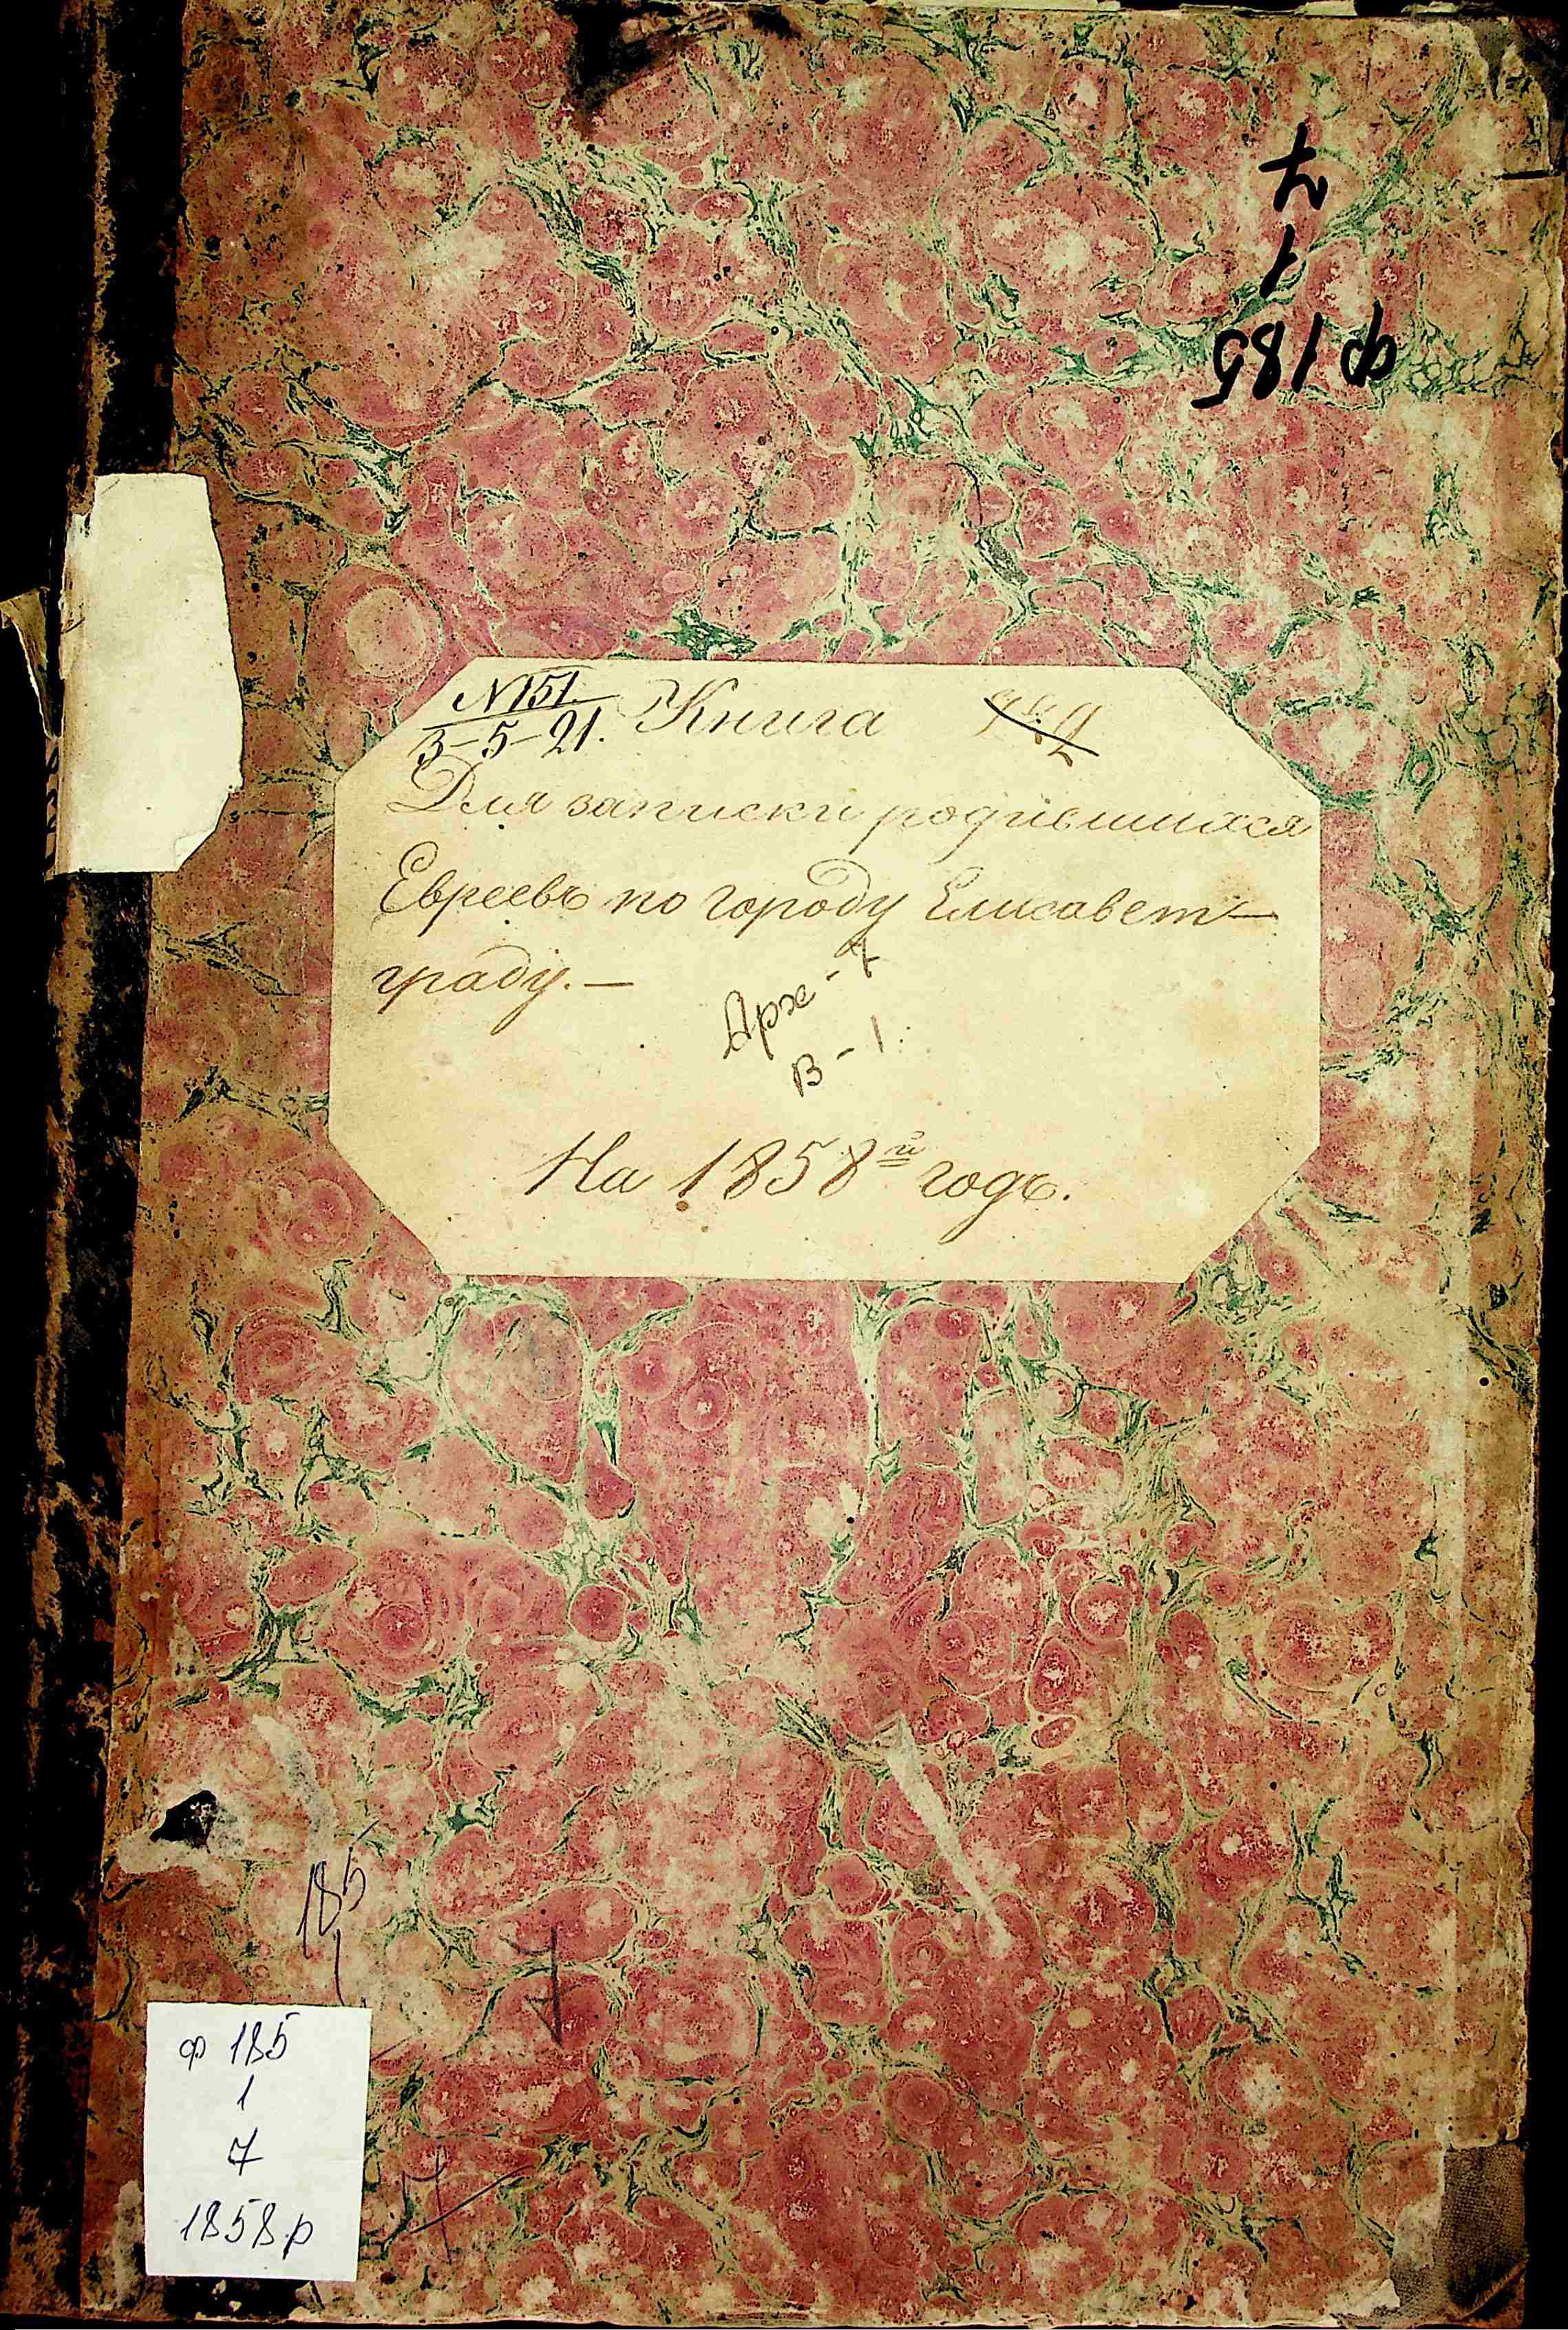 7
1
ф 185
№ 151 Книга
3-5-21.
Для записки родившихся
Евреевъ по городу Елисавет-
граду. —
Арх - 7
В - 1.
На 1858й годъ.
185
1
7
7
ф 185
1
7
1858 р